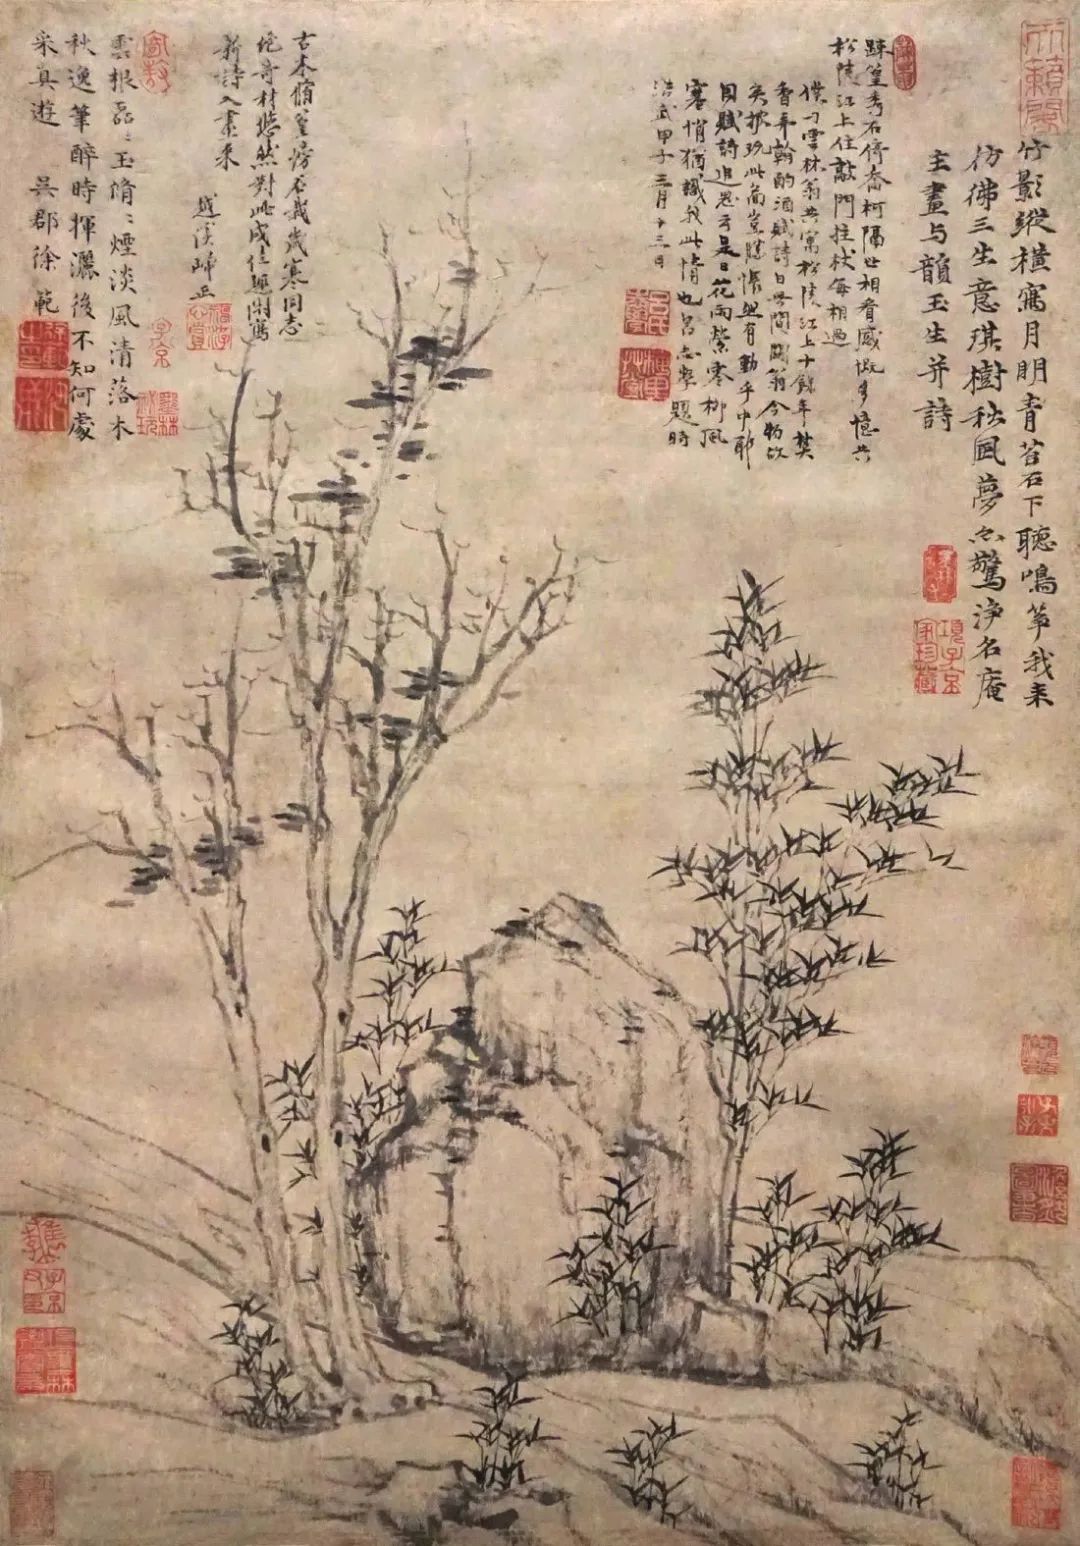 天籟閣
竹影縱橫寫月明青苔石下聽鳴箏我來
彷彿三生意琪樹秋風夢亦驚淨名庵
主畫与韻玉生并詩
項子京家珍藏
疎篁秀石倚喬柯隔世相看感慨多憶共
松陵江上住敲門拄杖每相過
僕与雲林翁共寓松陵江上十餘年焚
香弄翰酌酒賦詩日無間闊翁今物故
矣披玩此圖豈勝悵然有動乎中耶
因賦詩追思云是日花雨縈寒柳風
寒悄猶識我此情也呂志學題時
洪武甲子三月十三日
古木脩篁傍石栽歲寒同志
絕奇材悠然對此成佳興閒寫
新詩入畫來
越溪 正
子京
墨林秘玩
雲根磊〻玉脩〻煙淡風清落木
秋逸筆醉時揮灑後不知何處
采真遊 吳郡徐範